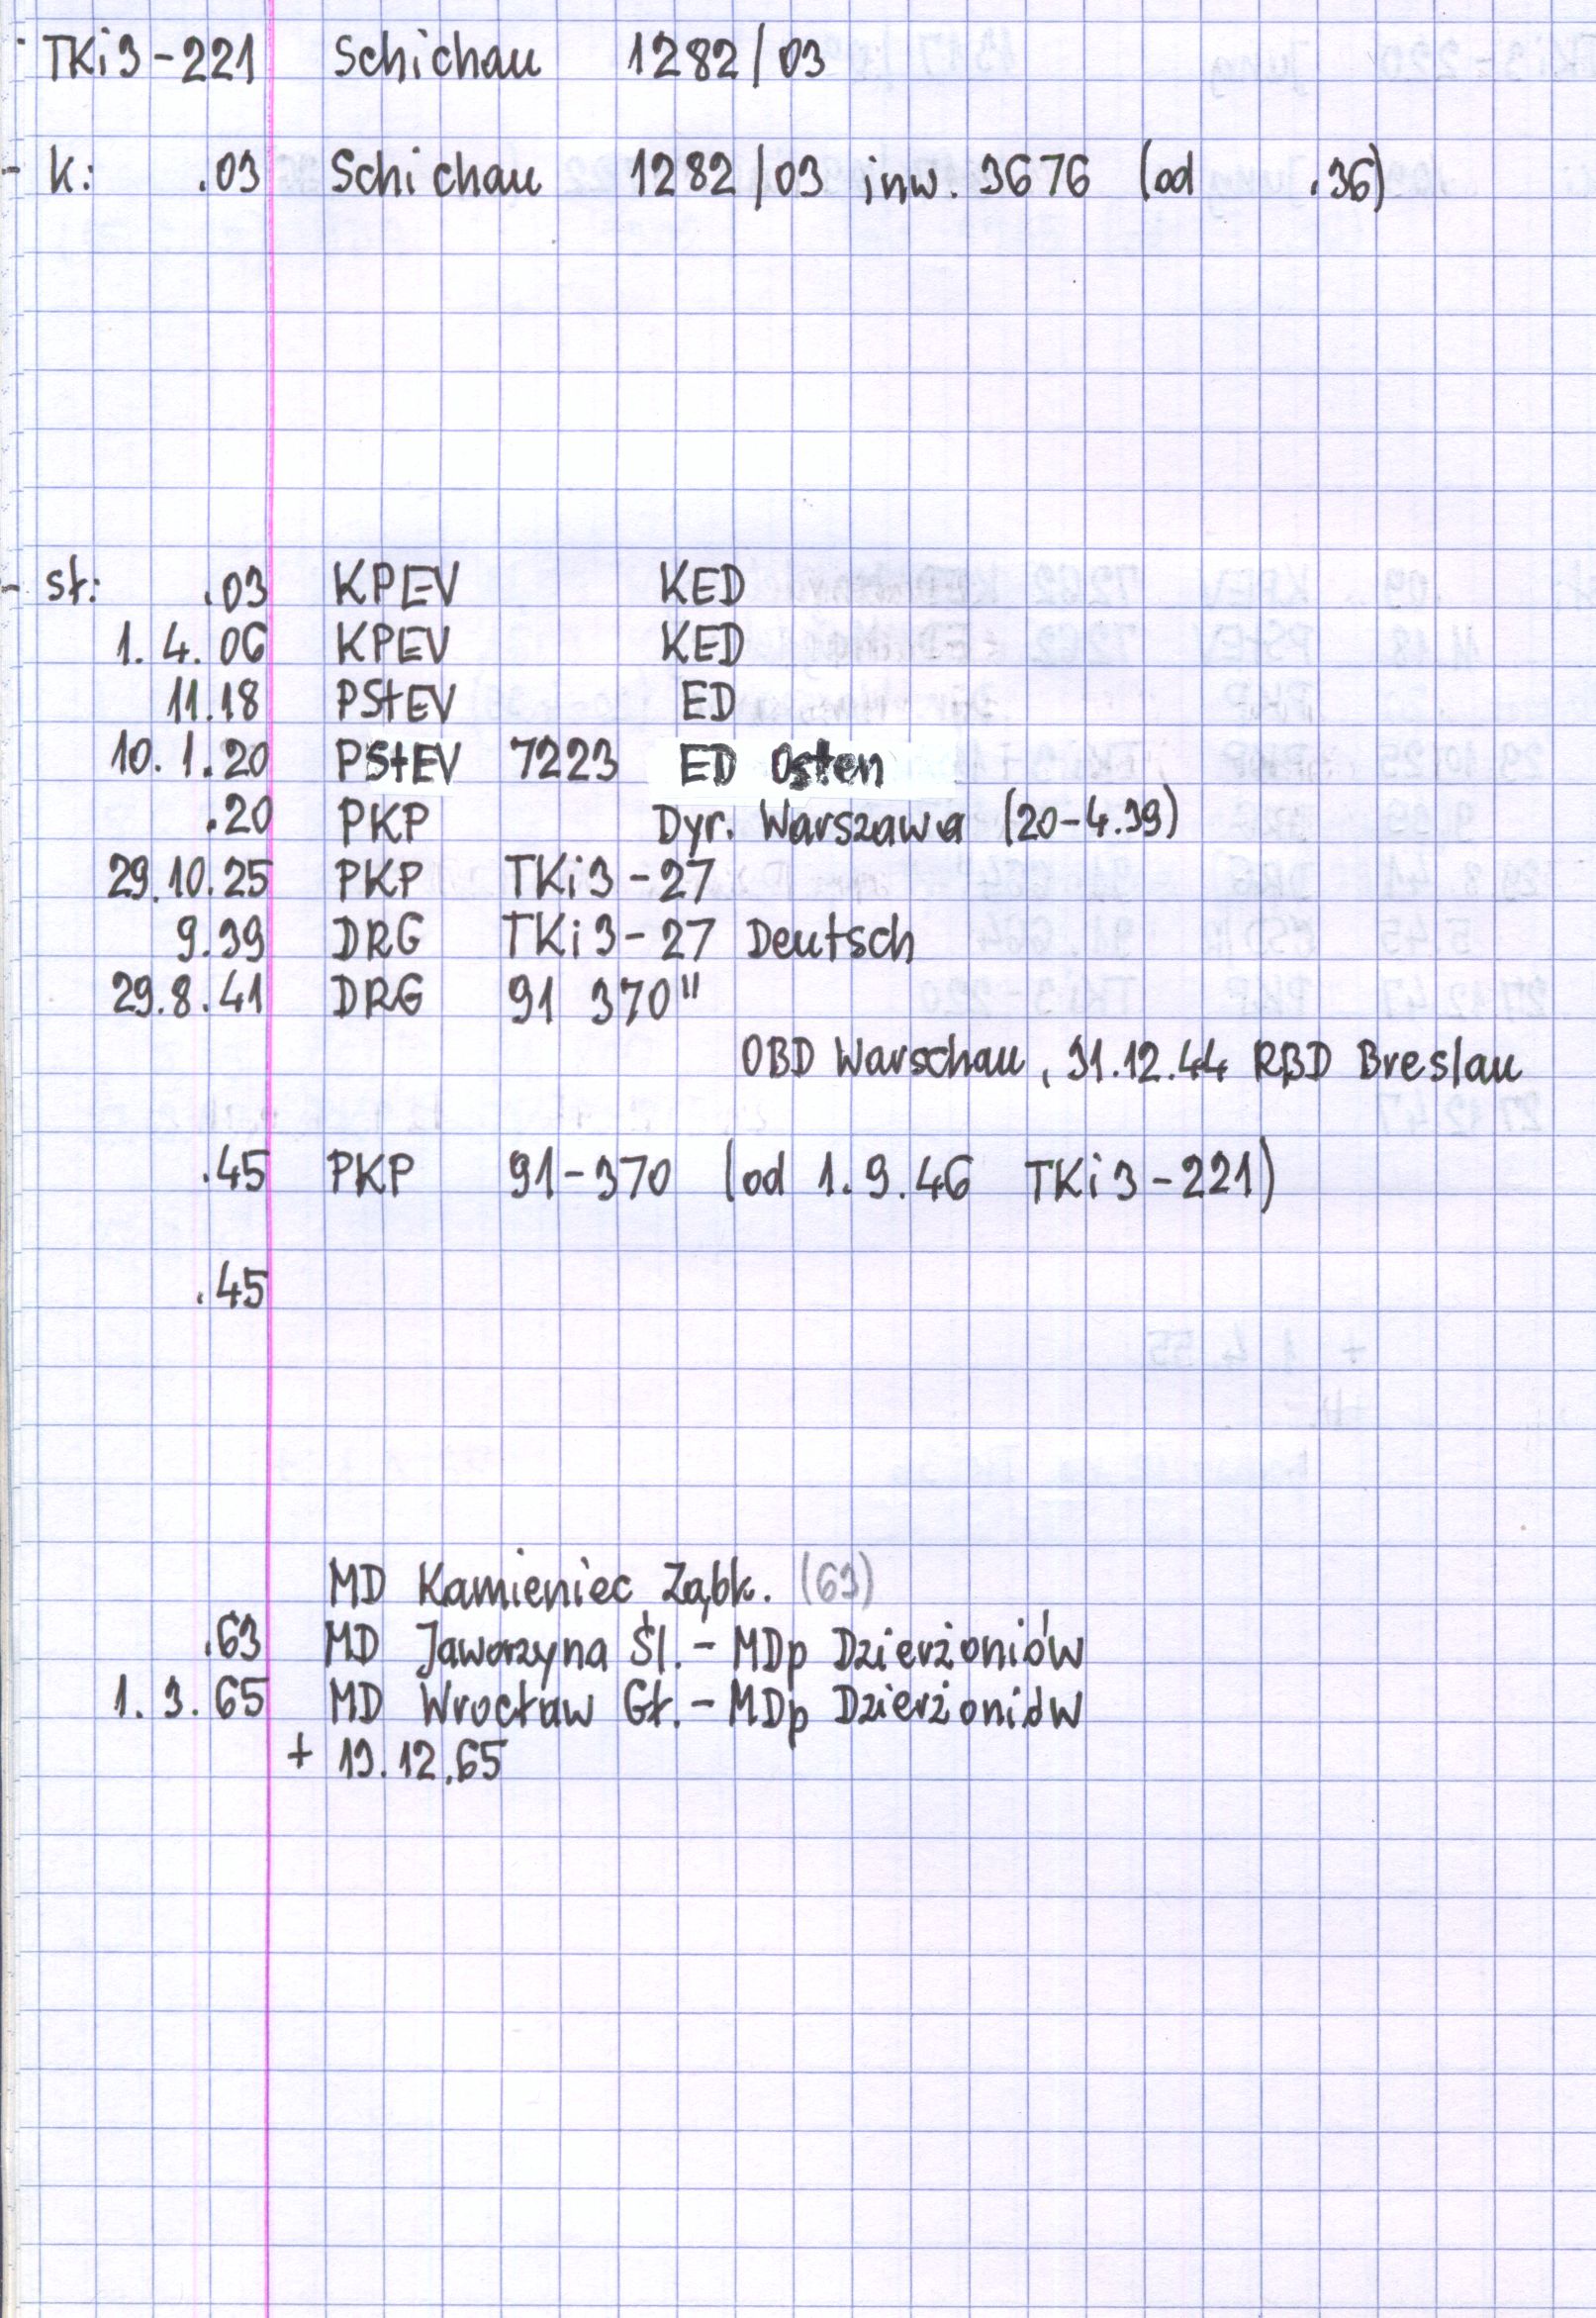 TKi3-221 Schichau 1282/03
- k: .03 Schichau 1282/03 inw. 3676 (od .36)
- st: .03 KPEV KED
1.4.06 KPEV KED
11.18 PStEV ED
10.1.20 PStEV 7223 ED Osten
.20 PKP Dyr. Warszawa (20-4.39)
29.10.25 PKP TKi3-27
9.39 DRG TKi3-27 Deutsch
29.8.41 DRG 91 370"
OBD Warschau, 31.12.44 RBD Breslau
.45 PKP 91-370 (od 1.9.46 TKi3-221)
.45
MD Kamieniec Ząbk. (63)
.63 MD Jaworzyna Śl.- MDp Dzierżoniów
1.3.65 MD Wrocław Gł.- MDp Dzierżoniów
+ 19.12.65